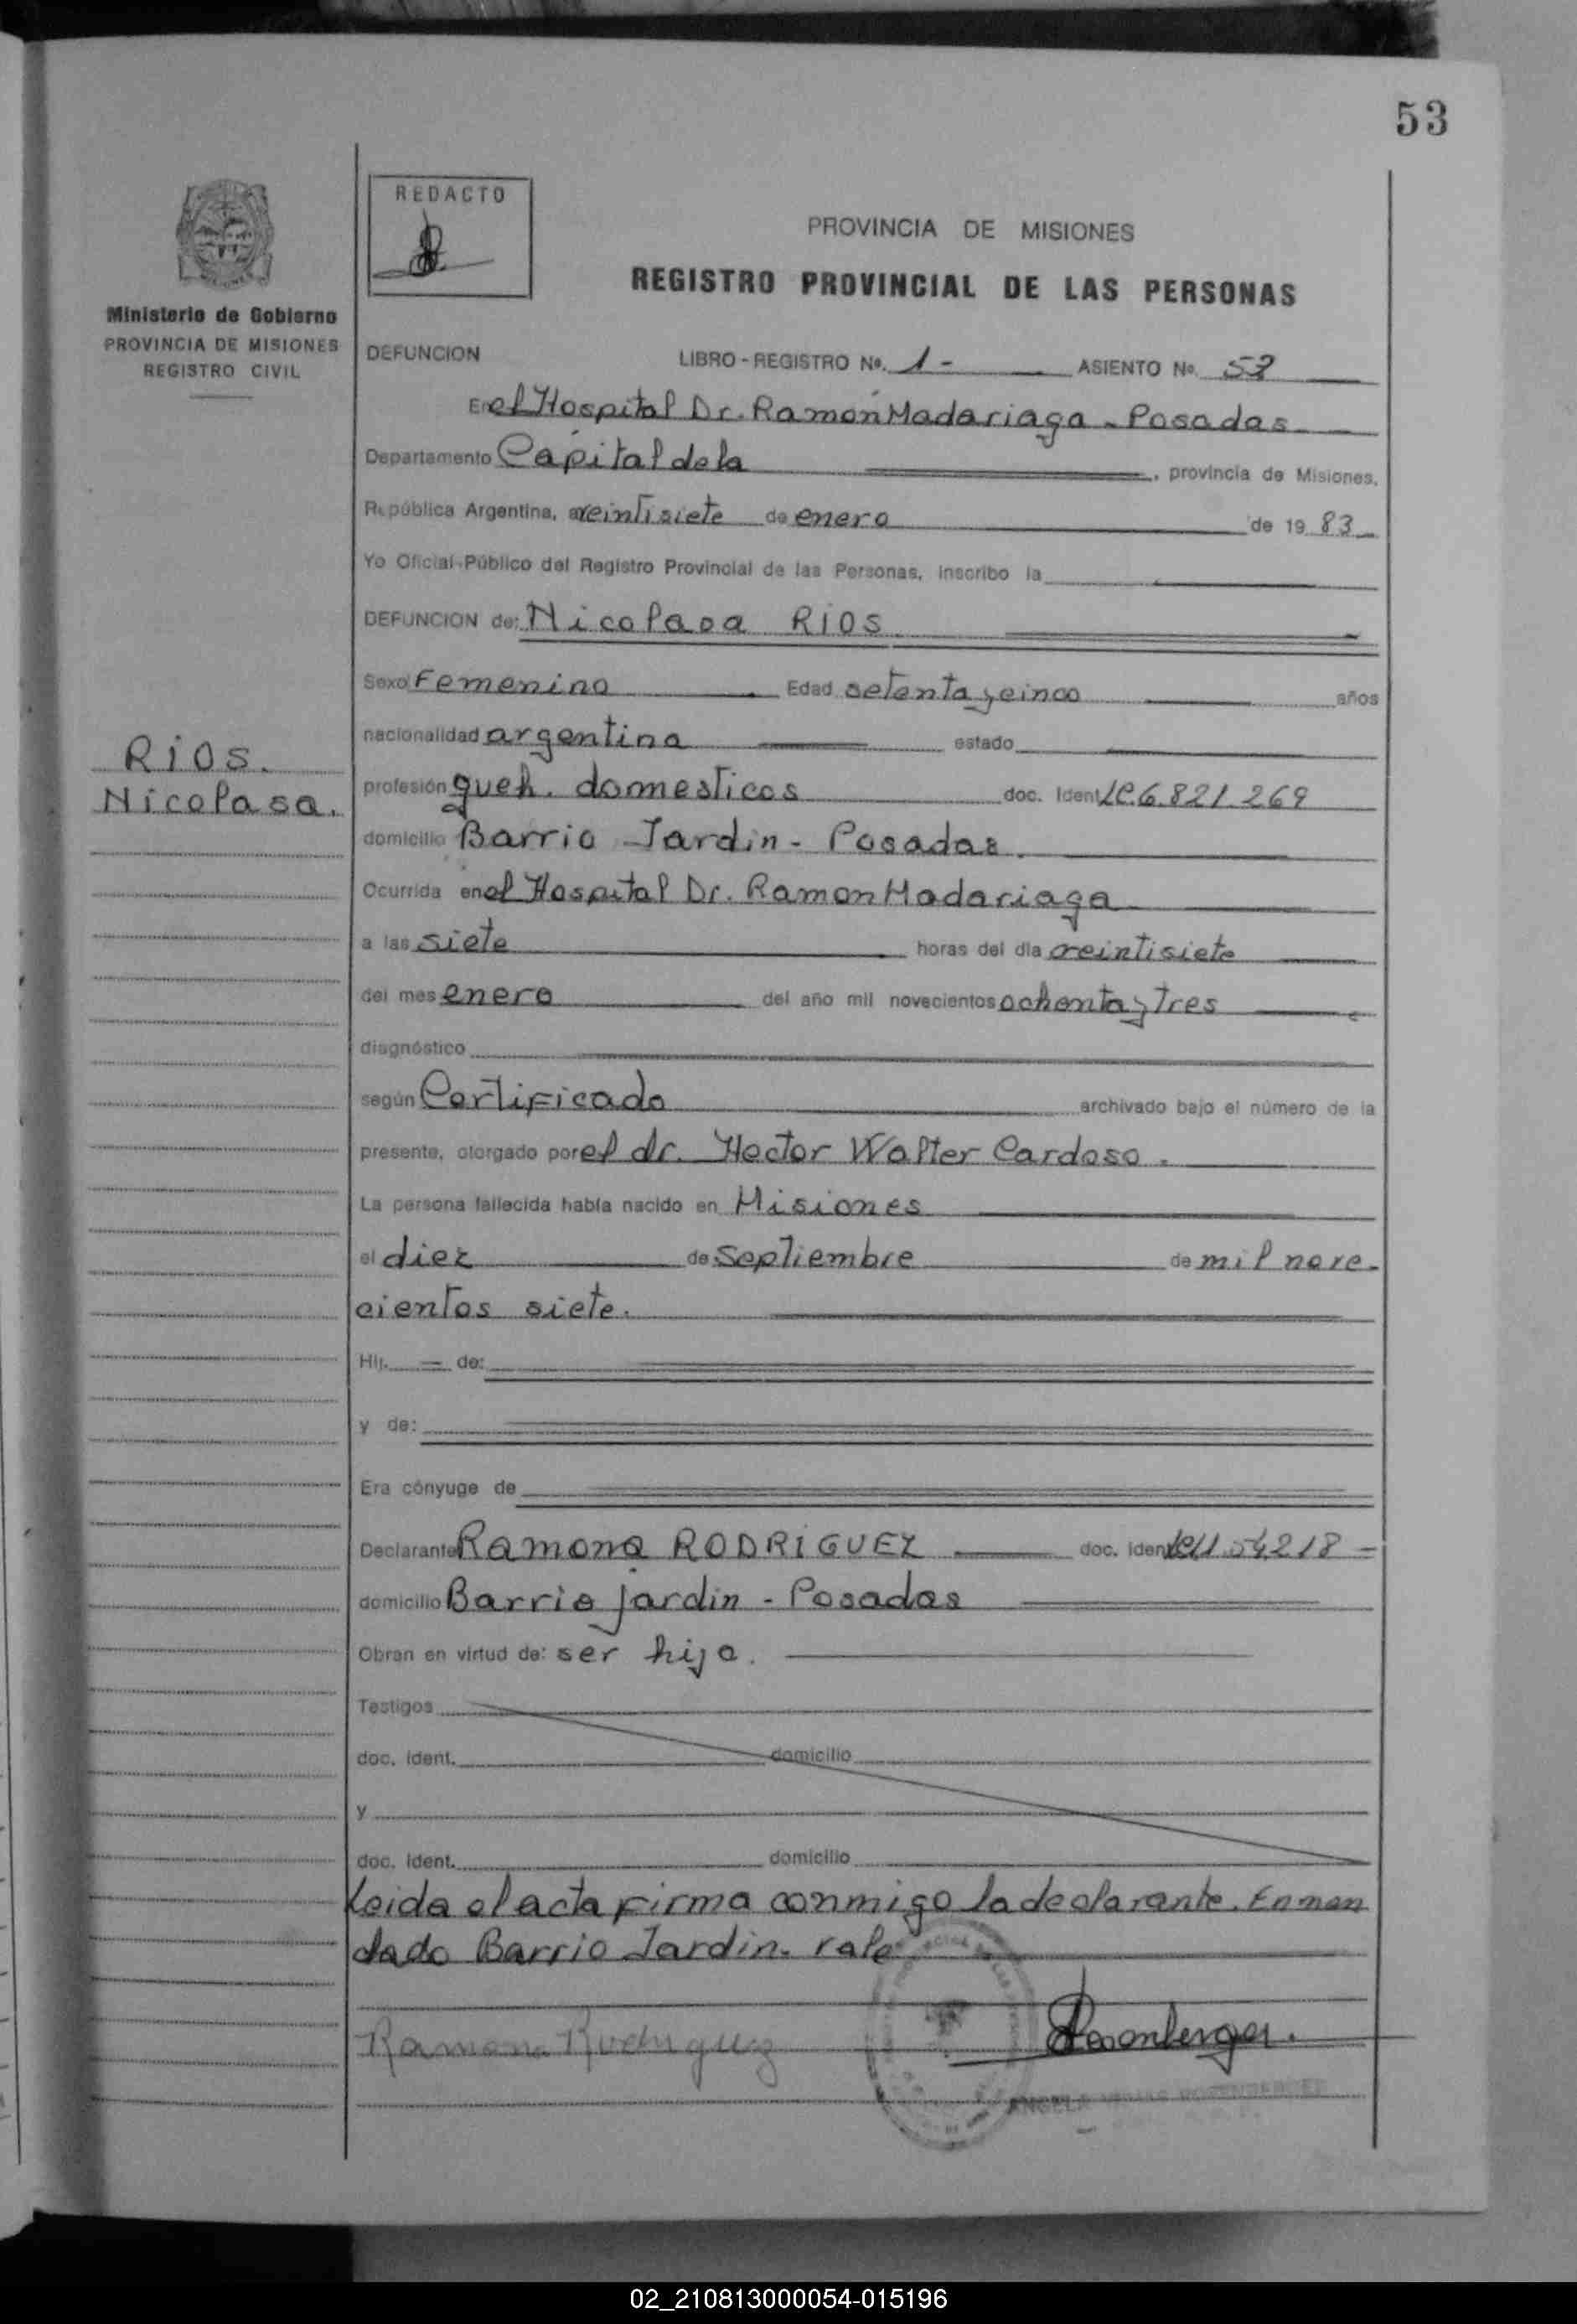 53
REDACTO
PROVINCIA DE MISIONES
REGISTRO PROVINCIAL DE LAS PERSONAS
Ministerio de Gobierno
PROVINCIA DE MISIONES
REGISTRO CIVIL
DEFUNCION LIBRO - REGISTRO Nº. 1 - ASIENTO Nº. 53
En el Hospital Dr. Ramón Madariaga - Posadas
Departamento Capital de la , provincia de Misiones,
República Argentina, a veintisiete de enero de 19 83
Yo Oficial Público del Registro Provincial de las Personas, inscribo la
DEFUNCION de: Nicolasa RIOS
Sexo Femenino Edad setenta y cinco años
nacionalidad argentina estado
RIOS.
Nicolasa.
profesión queh. domesticos doc. Ident. LC.6.821.269
domicilio Barrio Jardin - Posadas.
Ocurrida en el Hospital Dr. Ramon Madariaga
a las siete horas del día veintisiete
del mes enero del año mil novecientos ochenta y tres
diagnóstico
según Certificado archivado bajo el número de la
presente, otorgado por el dr. Hector Walter Cardoso.
La persona fallecida había nacido en Misiones
el diez de septiembre de mil nove-
cientos siete.
Hij. de:
y de:
Era cónyuge de
Declarante Ramona RODRIGUEZ doc. ident.
domicilio Barrio jardin - Posadas
Obran en virtud de: ser hija.
Testigos
doc. ident. domicilio
y
doc. ident. domicilio
Leida el acta firma conmigo la declarante. Enmen
dado Barrio Jardin. vale
Ramona Rodriguez Rosenberger.
ANGELA ROZENBERGER
02_210813000054-015196